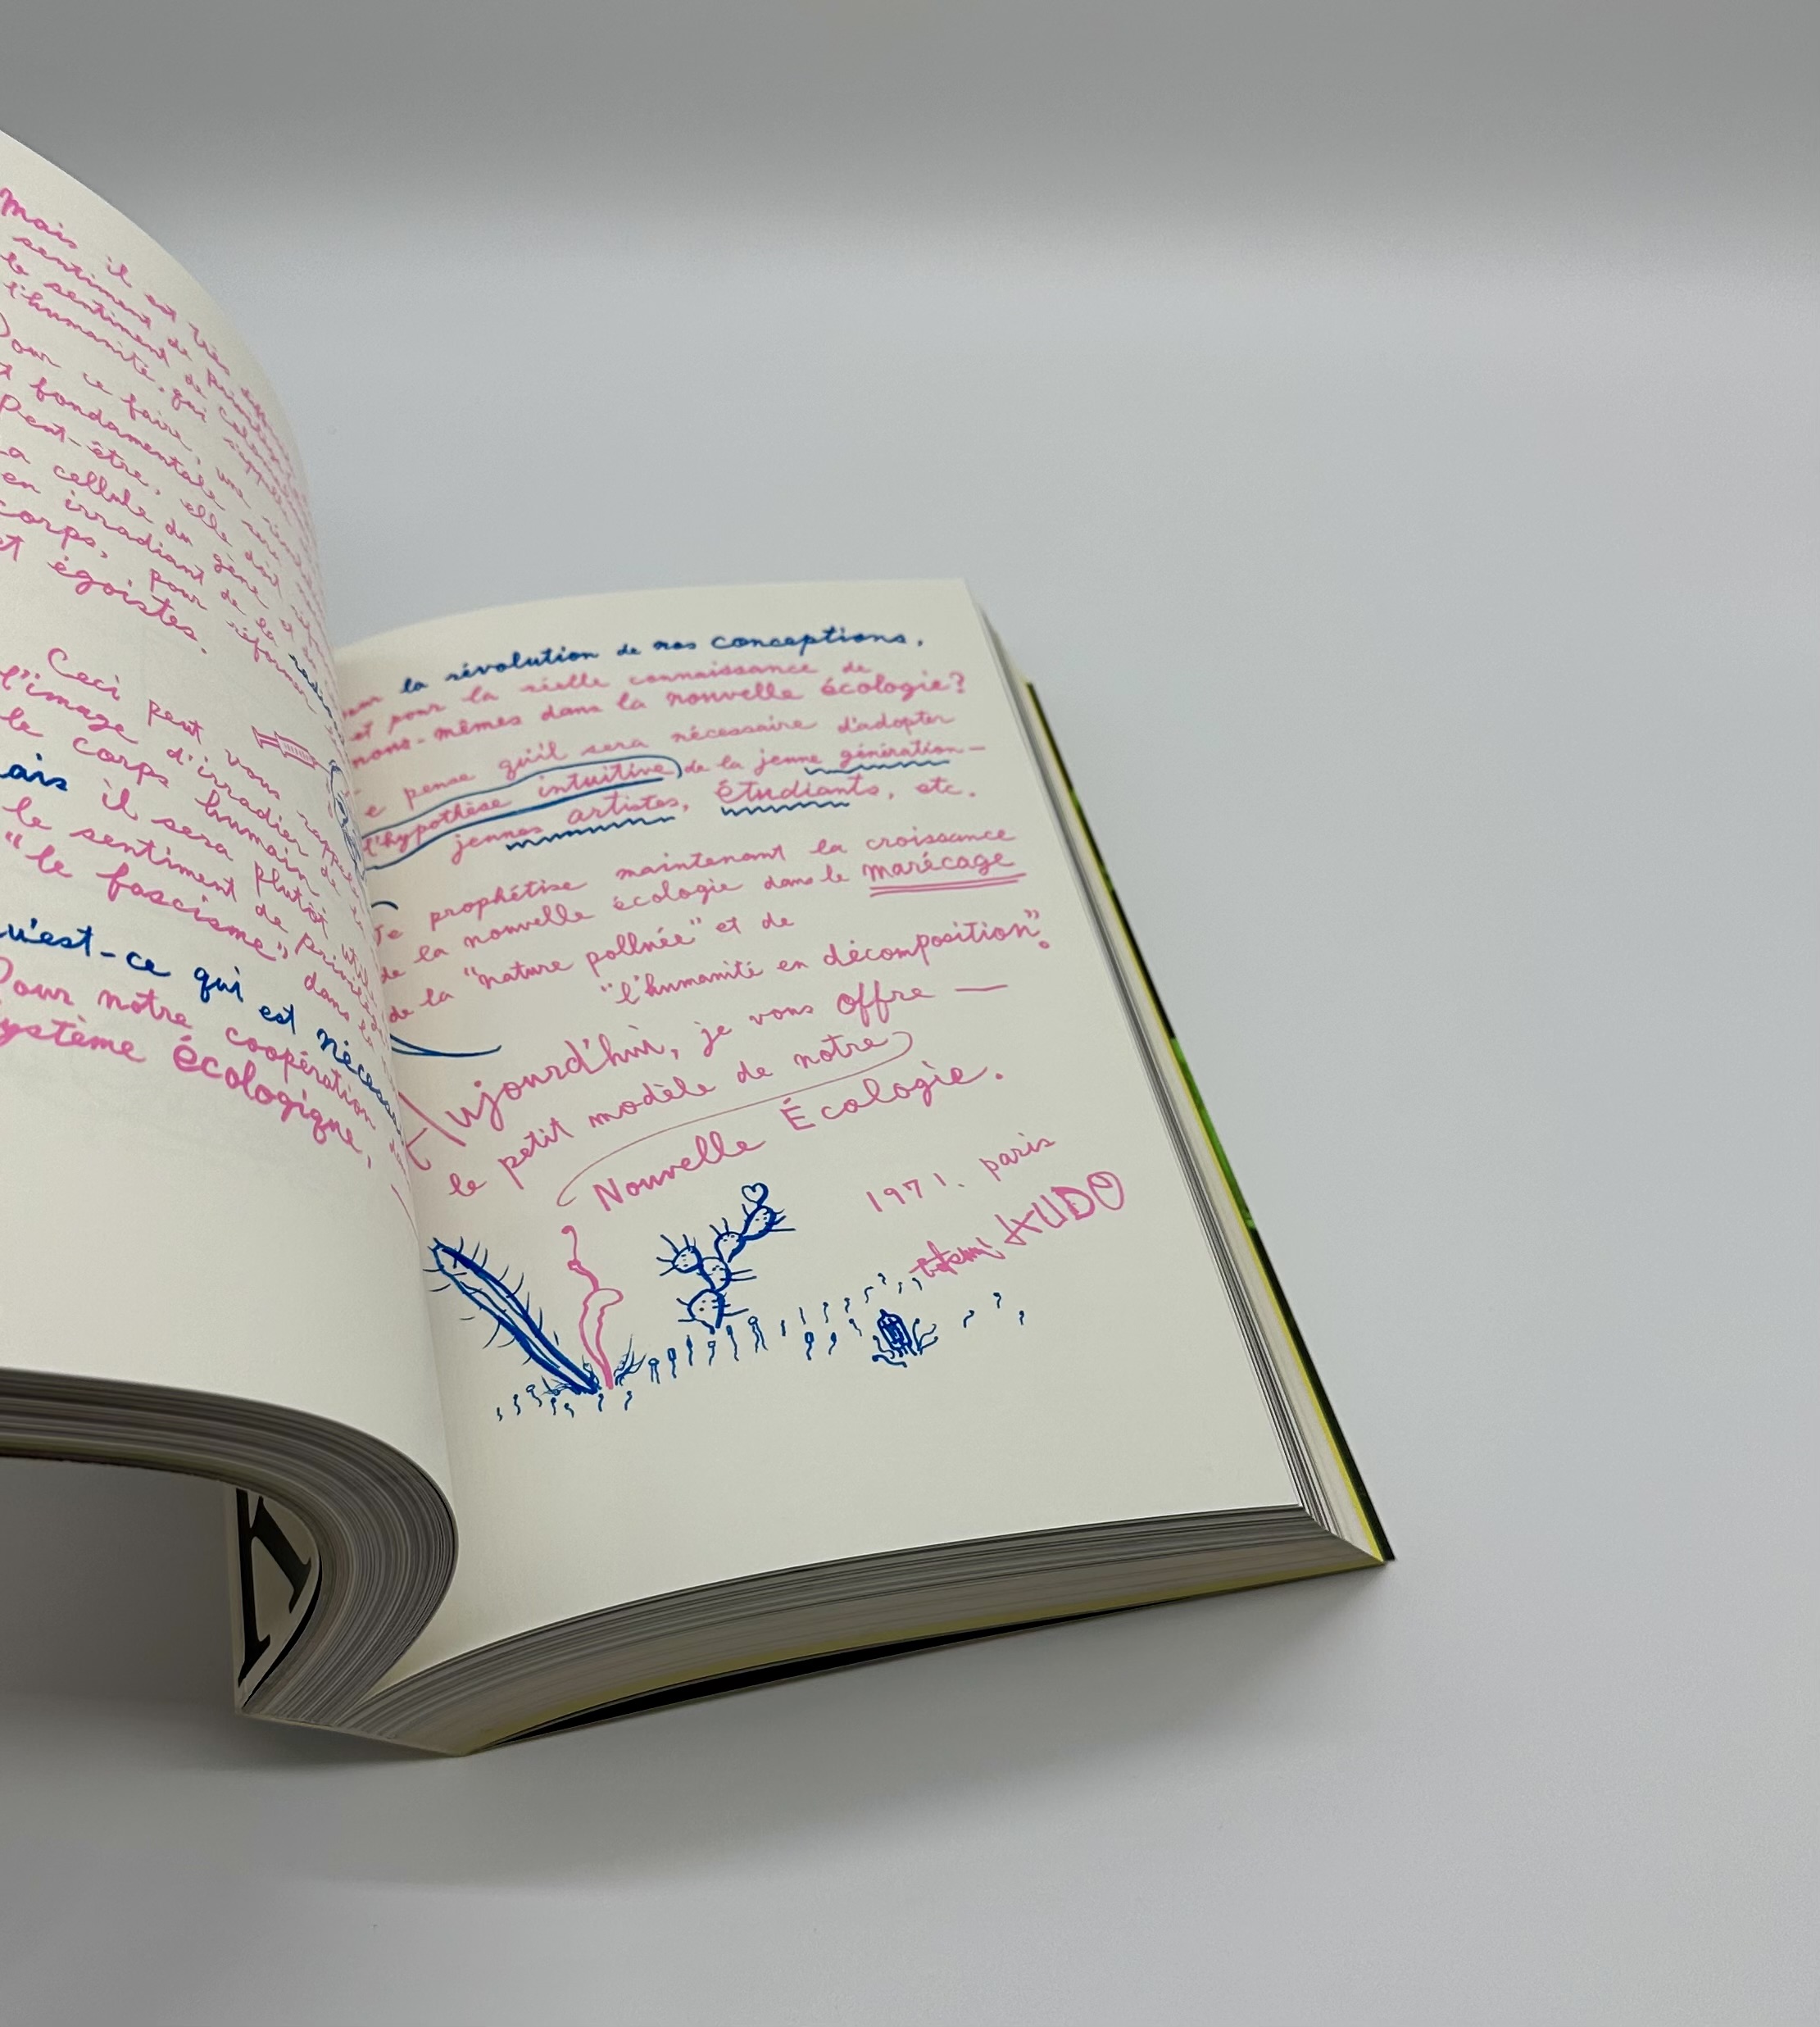 Mais il est très
sentiment de
le sentiment de
l'humanité, qui
Pour ce faire, une
fondamentale
Peut-être, elle doit
La cellule du gène et
en irradiant de la
corps, pour réformer
et égoistes.
Ceci peut vous rappeler
l'image d'irradier de
le corps humain
ais il sera plutôt
le sentiment de
"le fascisme", dans
u'est-ce qui est nécessa
Pour notre coopération
ystème écologique,
la révolution de nos conceptions,
et pour la réelle connaissance de
nous-mêmes dans la nouvelle écologie?
e pense qu'il sera nécessaire d'adopter
l'hypothèse intuitive de la jeune génération—
jeunes artistes, étudiants, etc.
Je prophétise maintenant la croissance
de la nouvelle écologie dans le marécage
de la "nature polluée" et de
"l'humanité en décomposition".
Aujourd'hui, je vous offre —
le petit modèle de notre
Nouvelle Écologie.
1971. paris
tetsumi KUDO
K